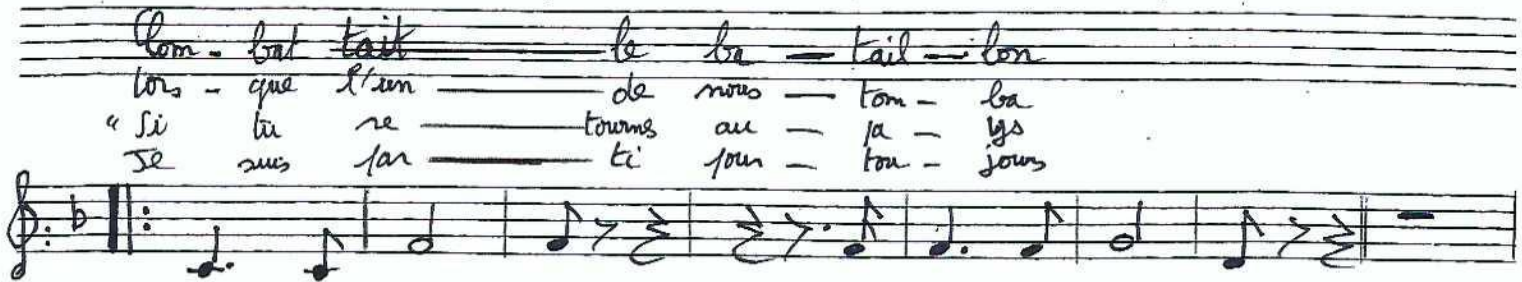 Com - bat tait le ba - tail - lon
Lors - que l'un de nous - tom - ba
"Si tu re tourns au - pa - ys
Je suis par ti pour - tou - jours